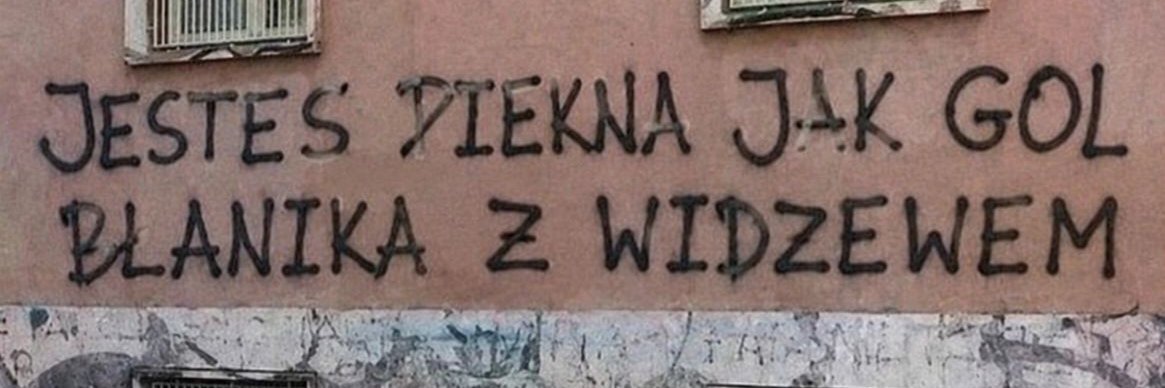 JESTES PIEKNA JAK GOL
BŁANIKA Z WIDZEWEM